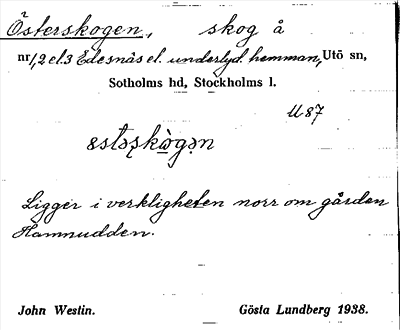 Österskogen, skog å
nr 1,2 el. 3 Edesnäs el. underlyd. hemman, Utö sn,
Sotholms hd, Stockholms l.
U 87
Ligger i verkligheten norr om gården
Hamnudden.
John Westin. Gösta Lundberg 1938.